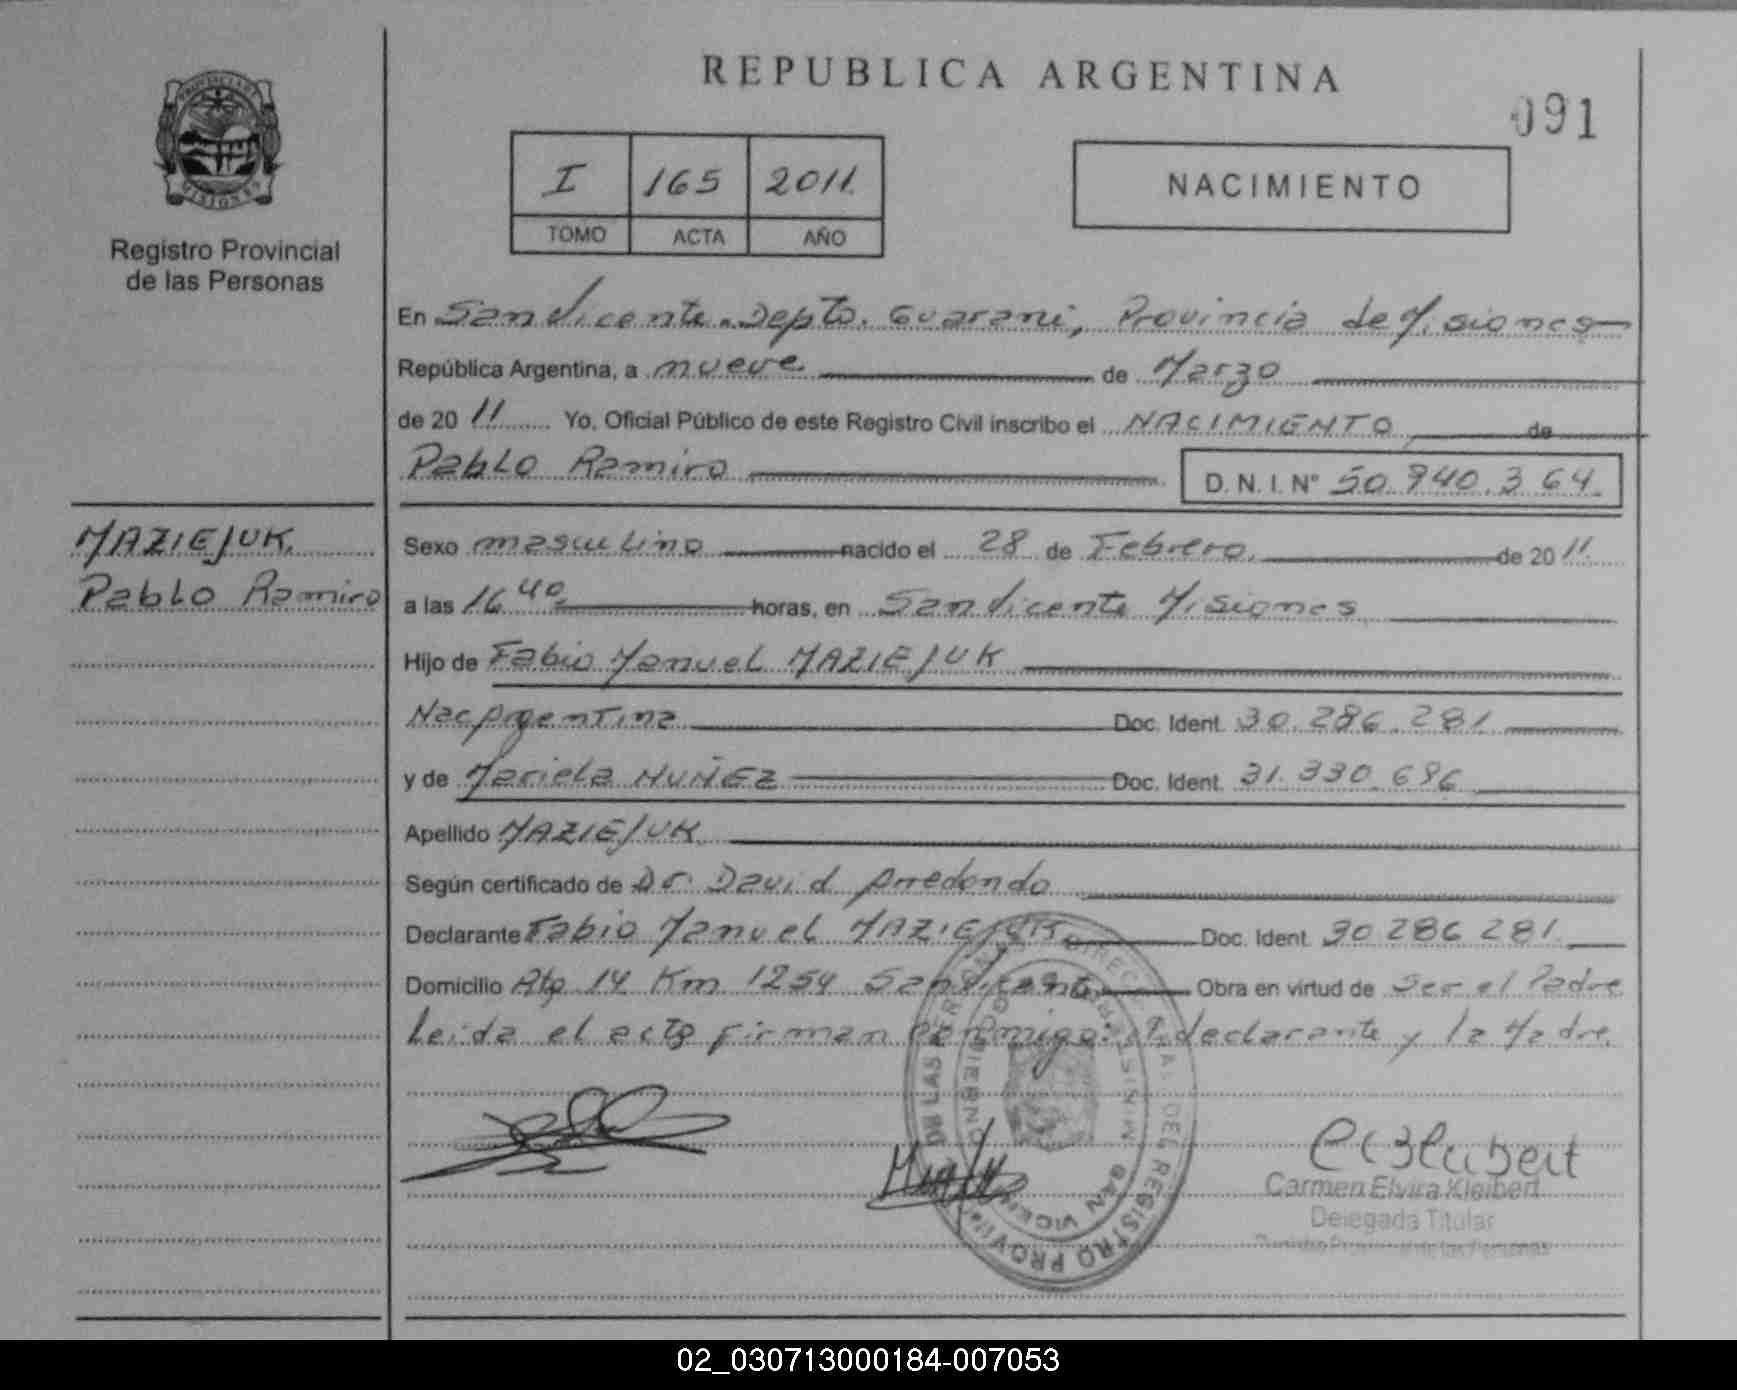 REPUBLICA ARGENTINA
091
PROVINCIA DE
MISIONES
Registro Provincial
de las Personas
I 165 2011
TOMO ACTA AÑO
NACIMIENTO
En San Vicente. Depto. Guarani, Provincia de Misiones
República Argentina, a nueve de Marzo
de 2011 Yo, Oficial Público de este Registro Civil inscribo el NACIMIENTO de
Pablo Ramiro D. N. I. N° 50.940.364.
MAZIEJUK
Pablo Ramiro
Sexo masculino nacido el 28 de Febrero de 2011
a las 16 40 horas, en San Vicente Misiones
Hijo de Fabio Manuel MAZIEJUK
Nac Argentina Doc. Ident. 30.286.281
y de Mariela NUÑEZ Doc. Ident. 31.330.686
Apellido MAZIEJUK
Según certificado de Dr. David Arredondo
Declarante Fabio Manuel MAZIEJUK Doc. Ident. 30 286 281
Domicilio Rta 14 Km 1254 San Vicente Obra en virtud de Ser el Padre
Leida el acta firman conmigo: el declarante y la Madre.
Carmen Elvira Kleibert
Delegada Titular
Registro Provincial de las Personas
02_030713000184-007053